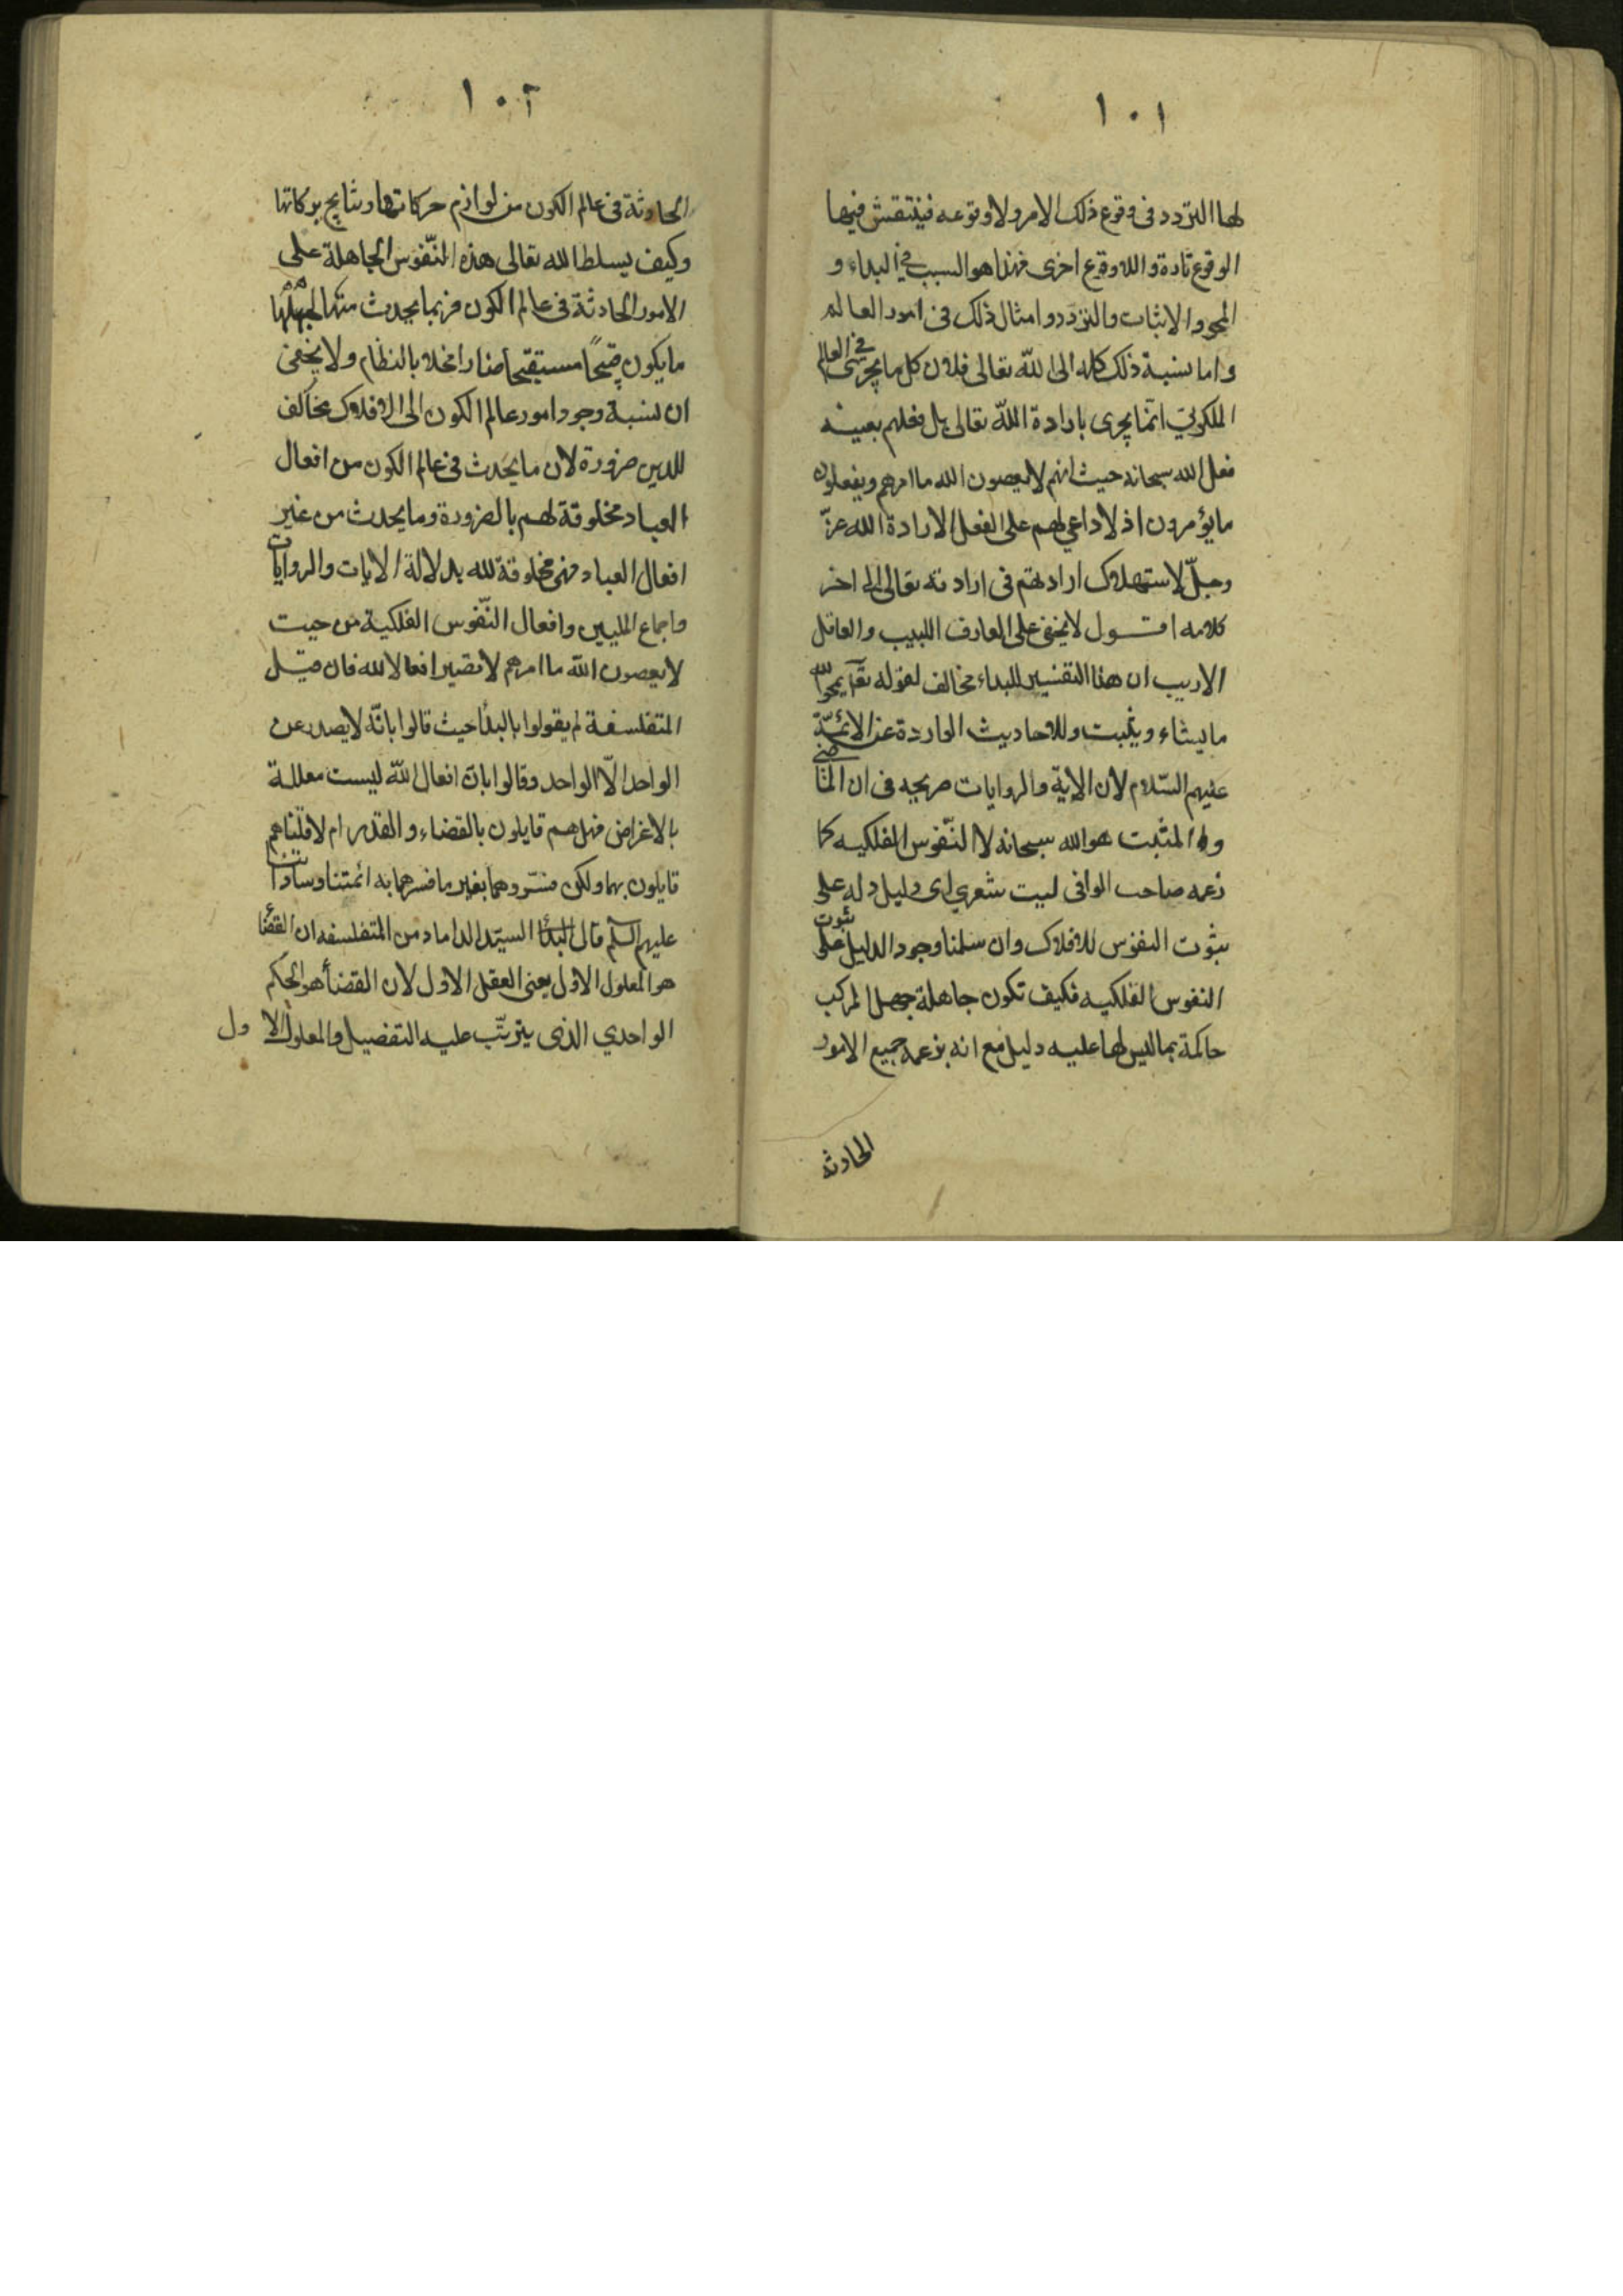 ١٠١
لها التردد فى وقوع ذلك الامر ولا وقوعه فينتقش فيها
الوقوع تارة واللاوقوع اخرى فهذا هو السبب في البداء و
المحو والاثبات والتردد وامثال ذلك فى امور العالم
واما نسبة ذلك كله الى الله تعالى فلان كل ما يجرى في العالم
الملكوتي انما يجرى بارادة الله تعالى بل فعلهم بعينه
فعل الله سبحانه حيث انهم لا يعصون الله ما امرهم ويفعلون
ما يؤمرون اذ لا داعي لهم على الفعل الا ارادة الله عزّ
وجلّ لاستهلاك ارادتهم فى ارادته تعالى الى اخر
كلامه اقول لا يخفى على العارف اللبيب والعاقل
الاريب ان هذا التفسير للبداء مخالف لقوله تعالى يمحو الله
ما يشاء ويثبت وللاحاديث الواردة عن الائمّة
عليهم السّلام لان الاية والروايات صريحه فى ان القاضى
والمثبت هو الله سبحانه لا النّفوس الفلكيه كما
زعمه صاحب الوافى ليت شعري اى دليل دله على
ثبوت النفوس للافلاك وان سلمنا وجود الدليل على ثبوت
النفوس الفلكيه فكيف تكون جاهلة جهل المركب
حاكمة بما ليس لها عليه دليل مع انه بزعمه جميع الامور
الحادثه
١٠٢
الحادثة فى عالم الكون من لوازم حركاتها ونتايج بركاتها
وكيف يسلط الله تعالى هذه النّفوس الجاهلة على
الامور الحادثة فى عالم الكون فربما يحدث منها لجهلها
ما يكون قبيحًا مستقبحا ضارا مخلا بالنظام ولا يخفى
ان نسبة وجود امور عالم الكون الى الافلاك مخالف
للدين ضرورة لان ما يحدث فى عالم الكون من افعال
العباد مخلوقة لهم بالضرورة وما يحدث من غير
افعال العباد فهى مخلوقة لله بدلالة الايات والروايات
واجماع المليين وافعال النّفوس الفلكية من حيث
لا يعصون الله ما امرهم لا تصير افعالا لله فان قيل
المتفلسفة لم يقولوا بالبداء حيث قالوا بانّه لا يصدر عن
الواحد الّا الواحد وقالوا بان افعال الله ليست معللة
بالاغراض فهل هم قايلون بالقضاء والقدر ام لا قلنا هم
قايلون بهما ولكن فسّروهما بغير ما فسرهما به ائمتنا وساداتنا
عليهم السلم قال السيّد الداماد من المتفلسفه ان القضاء
هو المعلول الاول يعنى العقل الاول لان القضاء هو الحكم
الواحدي الذى يترتّب عليه التفصيل والمعلول الاول